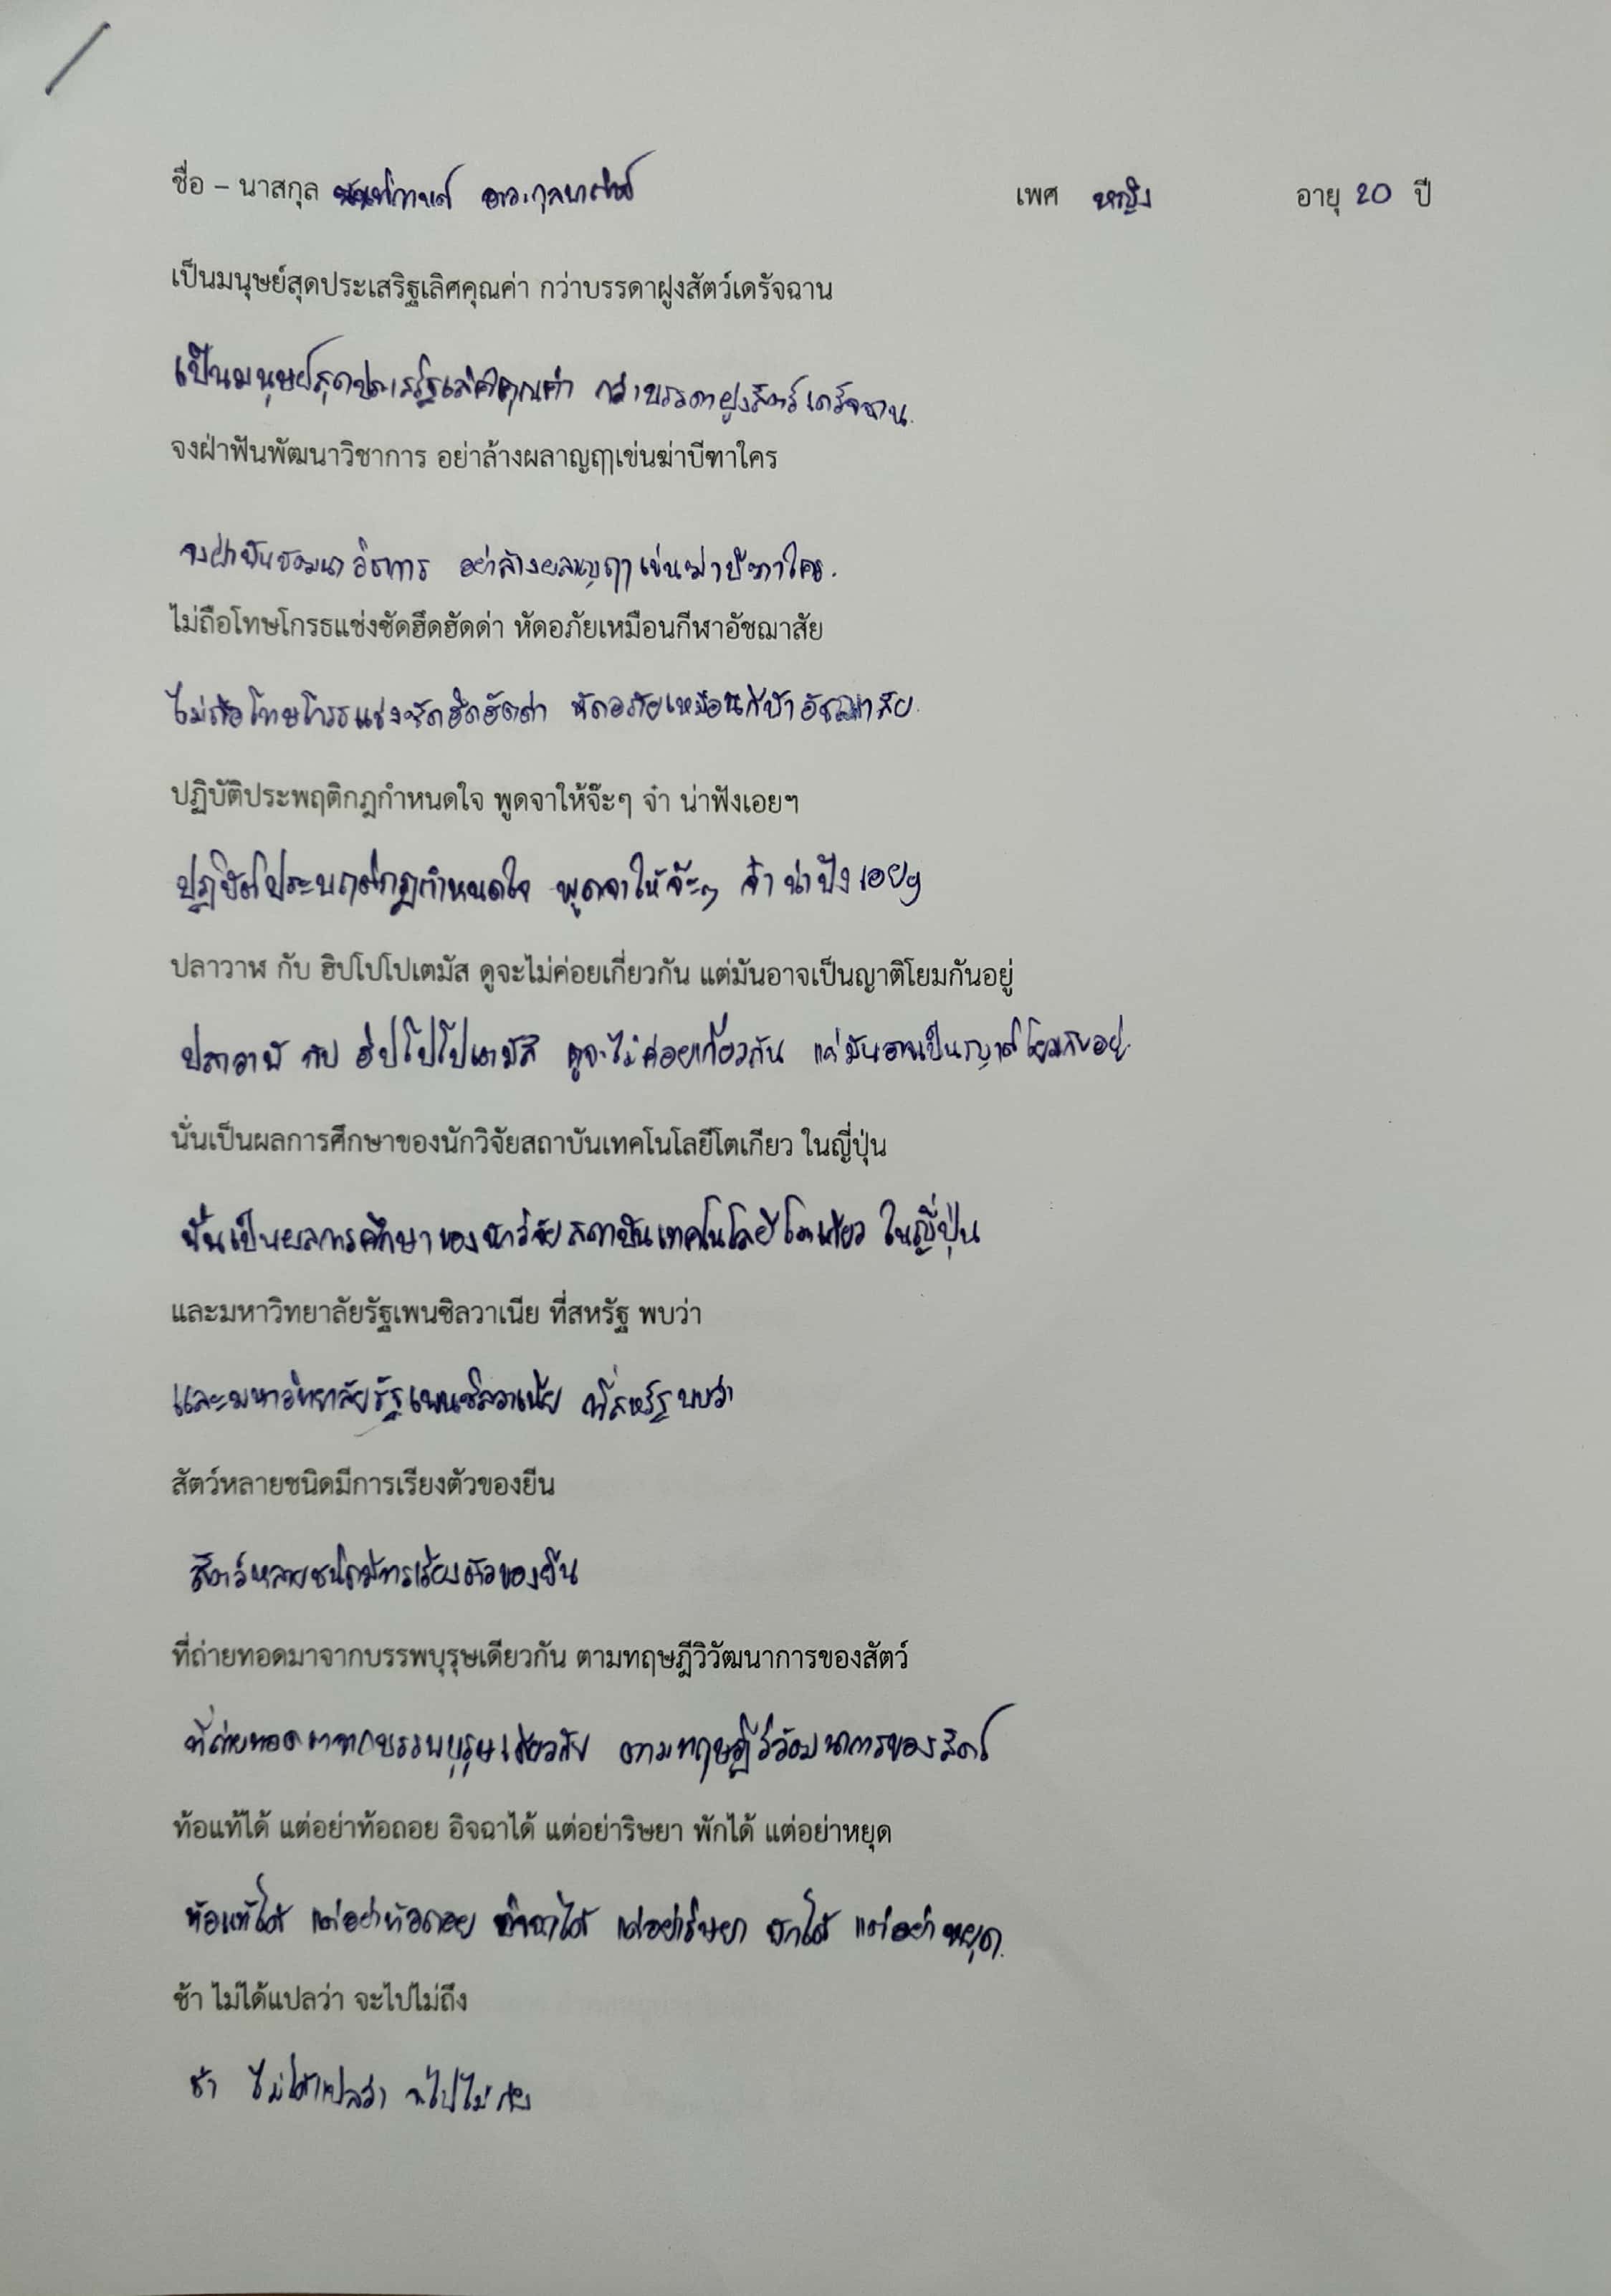 ชื่อ – นาสกุล เพศ หญิง อายุ 20 ปี
เป็นมนุษย์สุดประเสริฐเลิศคุณค่า กว่าบรรดาฝูงสัตว์เดรัจฉาน
เป็นมนุษย์สุดประเสริฐเลิศคุณค่า กว่าบรรดาฝูงสัตว์เดรัจฉาน.
จงฝ่าฟันพัฒนาวิชาการ อย่าล้างผลาญฤๅเข่นฆ่าบีฑาใคร
จงฝ่าฟันพัฒนาวิชาการ อย่าล้างผลาญฤๅเข่นฆ่าบีฑาใคร.
ไม่ถือโทษโกรธแช่งซัดฮึดฮัดด่า หัดอภัยเหมือนกีฬาอัชฌาสัย
ไม่ถือโทษโกรธแช่งซัดฮึดฮัดด่า หัดอภัยเหมือนกีฬาอัชฌาสัย.
ปฏิบัติประพฤติกฎกำหนดใจ พูดจาให้จ๊ะๆ จ๋า น่าฟังเอยฯ
ปฏิบัติประพฤติกฎกำหนดใจ พูดจาให้จ๊ะๆ จ๋า น่าฟังเอยฯ
ปลาวาฬ กับ ฮิปโปโปเตมัส ดูจะไม่ค่อยเกี่ยวกัน แต่มันอาจเป็นญาติโยมกันอยู่
ปลาวาฬ กับ ฮิปโปโปเตมัส ดูจะไม่ค่อยเกี่ยวกัน แต่มันอาจเป็นญาติโยมกันอยู่.
นั่นเป็นผลการศึกษาของนักวิจัยสถาบันเทคโนโลยีโตเกียว ในญี่ปุ่น
นั่นเป็นผลการศึกษาของนักวิจัยสถาบันเทคโนโลยีโตเกียว ในญี่ปุ่น
และมหาวิทยาลัยรัฐเพนซิลวาเนีย ที่สหรัฐ พบว่า
และมหาวิทยาลัยรัฐเพนซิลวาเนีย ที่สหรัฐ พบว่า
สัตว์หลายชนิดมีการเรียงตัวของยีน
สัตว์หลายชนิดมีการเรียงตัวของยีน
ที่ถ่ายทอดมาจากบรรพบุรุษเดียวกัน ตามทฤษฎีวิวัฒนาการของสัตว์
ที่ถ่ายทอดมาจากบรรพบุรุษเดียวกัน ตามทฤษฎีวิวัฒนาการของสัตว์
ท้อแท้ได้ แต่อย่าท้อถอย อิจฉาได้ แต่อย่าริษยา พักได้ แต่อย่าหยุด
ท้อแท้ได้ แต่อย่าท้อถอย อิจฉาได้ แต่อย่าริษยา พักได้ แต่อย่าหยุด.
ช้า ไม่ได้แปลว่า จะไปไม่ถึง
ช้า ไม่ได้แปลว่า จะไปไม่ถึง